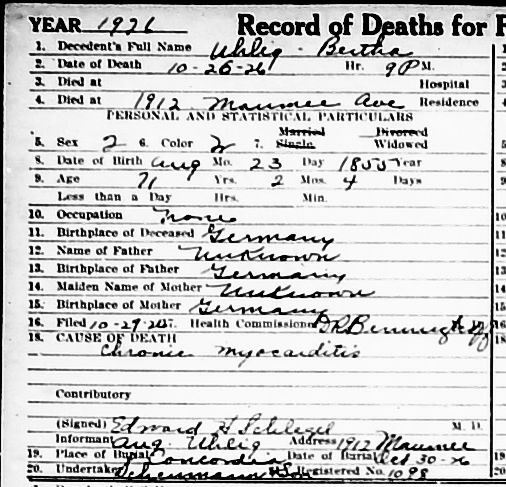 YEAR 1926 Record of Deaths for F
1. Decedent's Full Name Uhlig - Bertha
2. Date of Death 10-26-26 Hr. 9 P M.
3. Died at Hospital
4. Died at 1912 Maumee Ave Residence
PERSONAL AND STATISTICAL PARTICULARS
Married Divorced
5. Sex 2 6. Color 2 7. Single Widowed
8. Date of Birth Aug Mo. 23 Day 1855 Year
9. Age 71 Yrs. 2 Mos. 4 Days
Less than a Day Hrs. Min.
10. Occupation None
11. Birthplace of Deceased Germany
12. Name of Father Unknown
13. Birthplace of Father Germany
14. Maiden Name of Mother Unknown
15. Birthplace of Mother Germany
16. Filed 10-29-26 17. Health Commissioner
18. CAUSE OF DEATH
Chronic myocarditis
Contributory
(Signed) Edward H Schlegel M. D.
Informant Aug. Uhlig Address 1912 Maumee
19. Place of Burial Concordia Date of Burial Oct 30-26
20. Undertaker Scheumann & Son Registered No. 1098